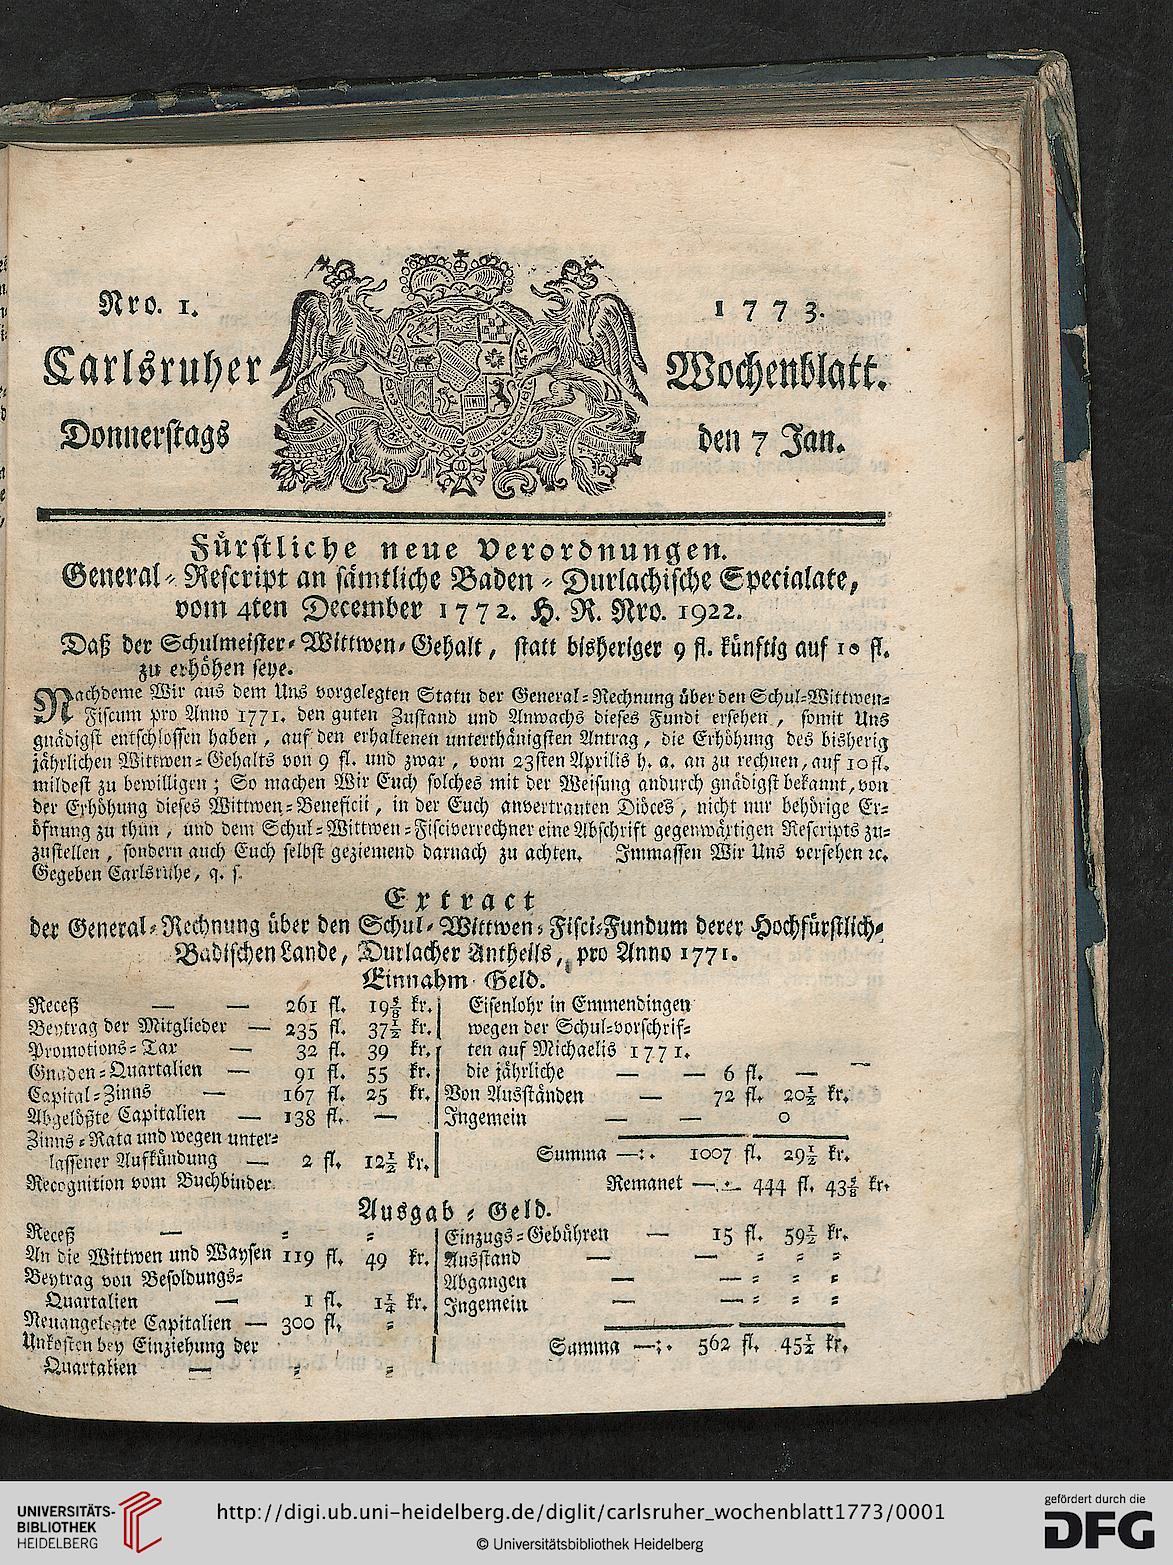 Nro. 1.
1773.
Carlsruher
Wochenblatt.
Donnerstags
den 7 Jan.
Fürstliche neue Verordnungen.
General-Rescript an sämtliche Baden-Durlachische Specialate,
vom 4ten December 1772. H. R. Nro. 1922.
Daß der Schulmeister-Wittwen-Gehalt, statt bisheriger 9 fl. künftig auf 10 fl.
zu erhöhen seye.
Nachdeme Wir aus dem Uns vorgelegten Statu der General-Rechnung über den Schul-Wittwen-
Fiscum pro Anno 1771. den guten Zustand und Anwachs dieses Fundi ersehen, somit Uns
gnädigst entschlossen haben, auf den erhaltenen unterthänigsten Antrag, die Erhöhung des bisherig
jährlichen Wittwen-Gehalts von 9 fl. und zwar, vom 23sten Aprilis h. a. an zu rechnen, auf 10 fl.
mildest zu bewilligen; So machen Wir Euch solches mit der Weisung andurch gnädigst bekannt, von
der Erhöhung dieses Wittwen-Beneficii, in der Euch anvertrauten Diöces, nicht nur behörige Er-
öfnung zu thun, und dem Schul-Wittwen-Fisciverrechner eine Abschrift gegenwärtigen Rescripts zu-
zustellen, sondern auch Euch selbst geziemend darnach zu achten. Immassen Wir Uns versehen ꝛc.
Gegeben Carlsruhe, q. s.
Extract
der General-Rechnung über den Schul-Wittwen-Fisci-Fundum derer Hochfürstlich-
Badischen Lande, Durlacher Antheils, pro Anno 1771.
Einnahm-Geld.
Receß — — 261 fl. 19⅝ kr.
Beytrag der Mitglieder — 235 fl. 37½ kr.
Promotions-Tax — 32 fl. 39 kr.
Gnaden-Quartalien — 91 fl. 55 kr.
Capital-Zinns — 167 fl. 25 kr.
Abgelößte Capitalien — 138 fl. —
Zinns-Rata und wegen unter-
lassener Aufkündung — 2 fl. 12½ kr.
Recognition vom Buchbinder
Eisenlohr in Emmendingen
wegen der Schul-vorschrif-
ten auf Michaelis 1771.
die jährliche — — 6 fl. — —
Von Ausständen — 72 fl. 20½ kr.
Ingemein — — 0
Summa —:. 1007 fl. 29½ kr.
Remanet —.— 444 fl. 43⅝ kr.
Ausgab-Geld.
Receß — = =
An die Wittwen und Waysen 119 fl. 49 kr.
Beytrag von Besoldungs-
Quartalien — 1 fl. 1¼ kr.
Neuangelegte Capitalien — 300 fl. =
Unkosten bey Einziehung der
Quartalien — = =
Einzugs-Gebühren — 15 fl. 59½ kr.
Ausstand — — = = =
Abgangen — — = = =
Ingemein — — = = =
Summa —:. 562 fl. 45½ kr.
UNIVERSITÄTS-
BIBLIOTHEK
HEIDELBERG
http://digi.ub.uni-heidelberg.de/diglit/carlsruher_wochenblatt1773/0001
© Universitätsbibliothek Heidelberg
gefördert durch die
DFG